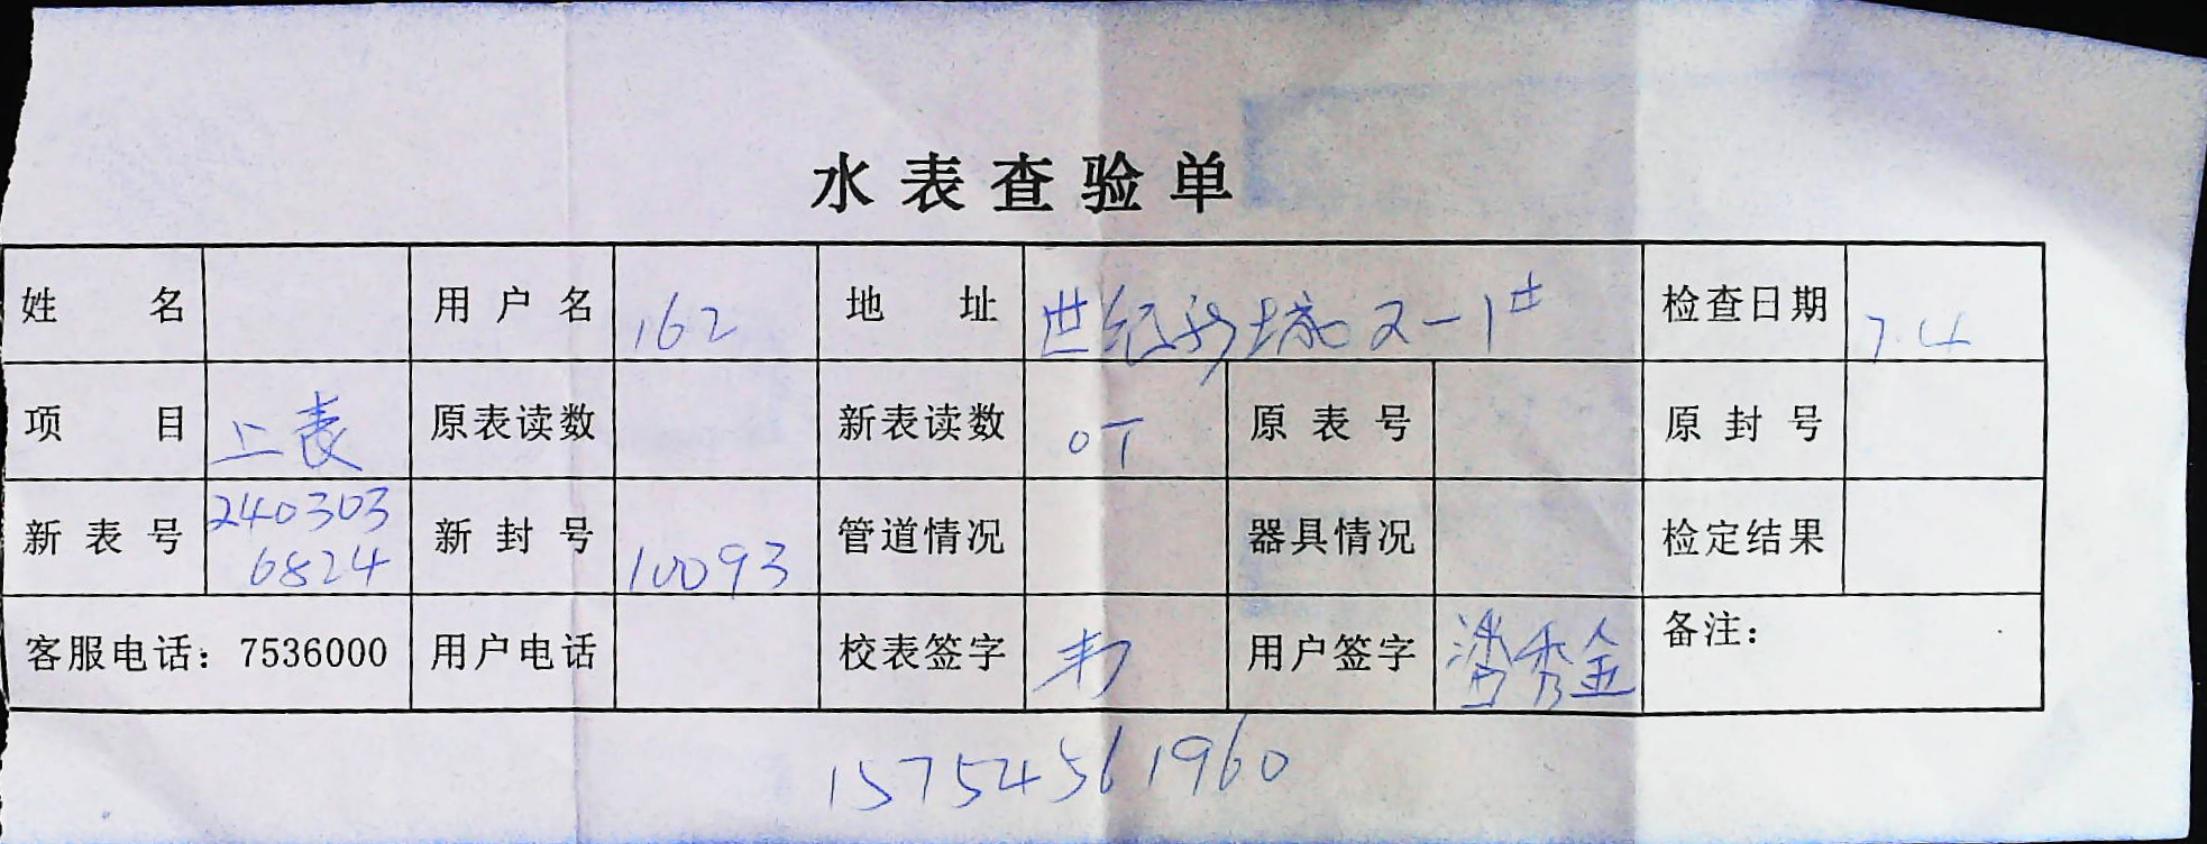 水表查验单
姓名 用户名 162 地址 世纪新城2-1# 检查日期 7.4
项目 上表 原表读数 新表读数 0T 原表号 原封号
新表号 2403036824 新封号 10093 管道情况 器具情况 检定结果
客服电话：7536000 用户电话 校表签字 用户签字 秀金 备注：
15754561960